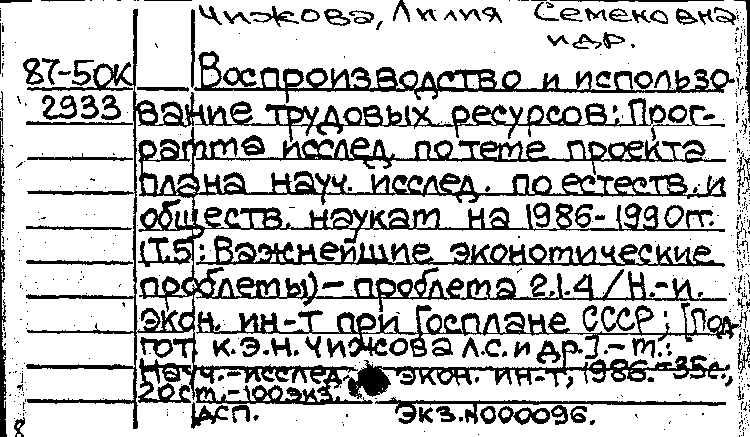 Чижова, Лилия Семеновна
и др.
87-50К Воспроизводство и использо-
2933 вание трудовых ресурсов: Прог-
рамма исслед. по теме проекта
плана науч. исслед. по естеств. и
обществ. наукам на 1986-1990гг.
(Т.5: Важнейшие экономические
проблемы) - проблема 2.1.4 / Н.-и.
экон. ин-т при Госплане СССР; [Под-
гот. к.э.н. Чижова Л.С. и др.]. - м.:
Науч.-исслед. экон. ин-т, 1986. - 35с.;
20см. - 100экз.
ДСП. Экз.N000096.
8